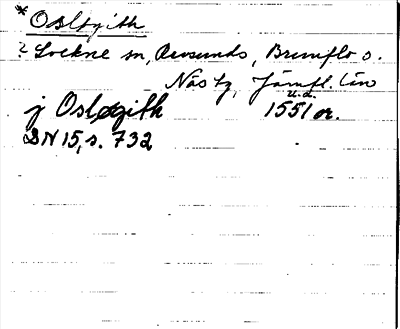 * Osløgith
? Lockne sn, Revsunds, Brunflo o.
Näs tg, Jämtl. län
u.d.
j Osløgith 1551 or.
DN 15, s. 732